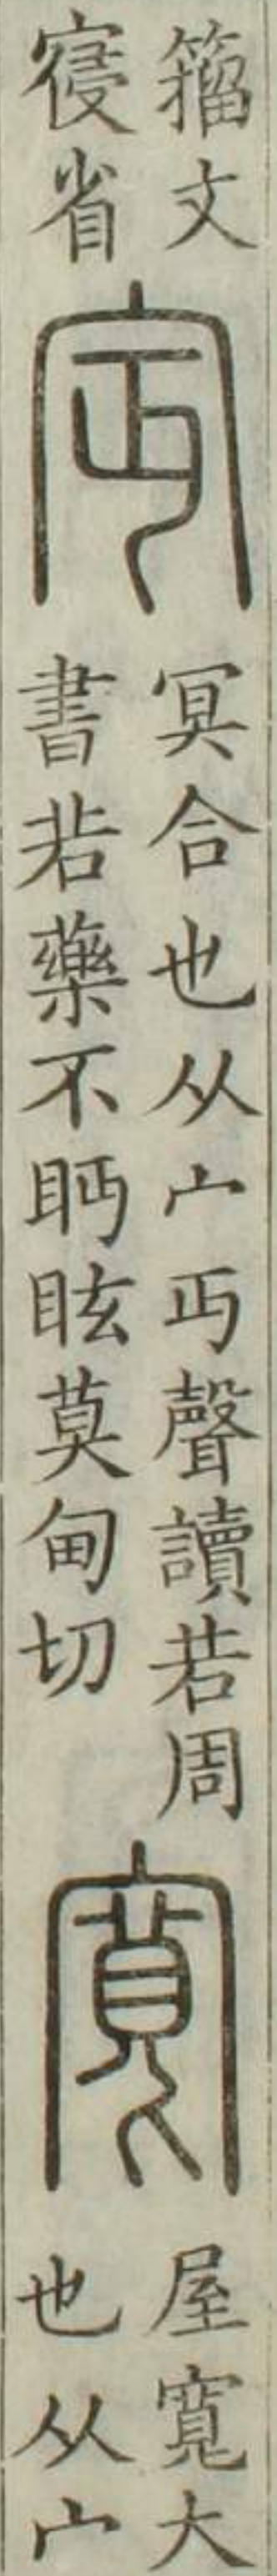 籒文
寑省
𡧍
冥合也从宀丏聲讀若周
書若藥不眄眩莫甸切
寬
屋寬大
也从宀